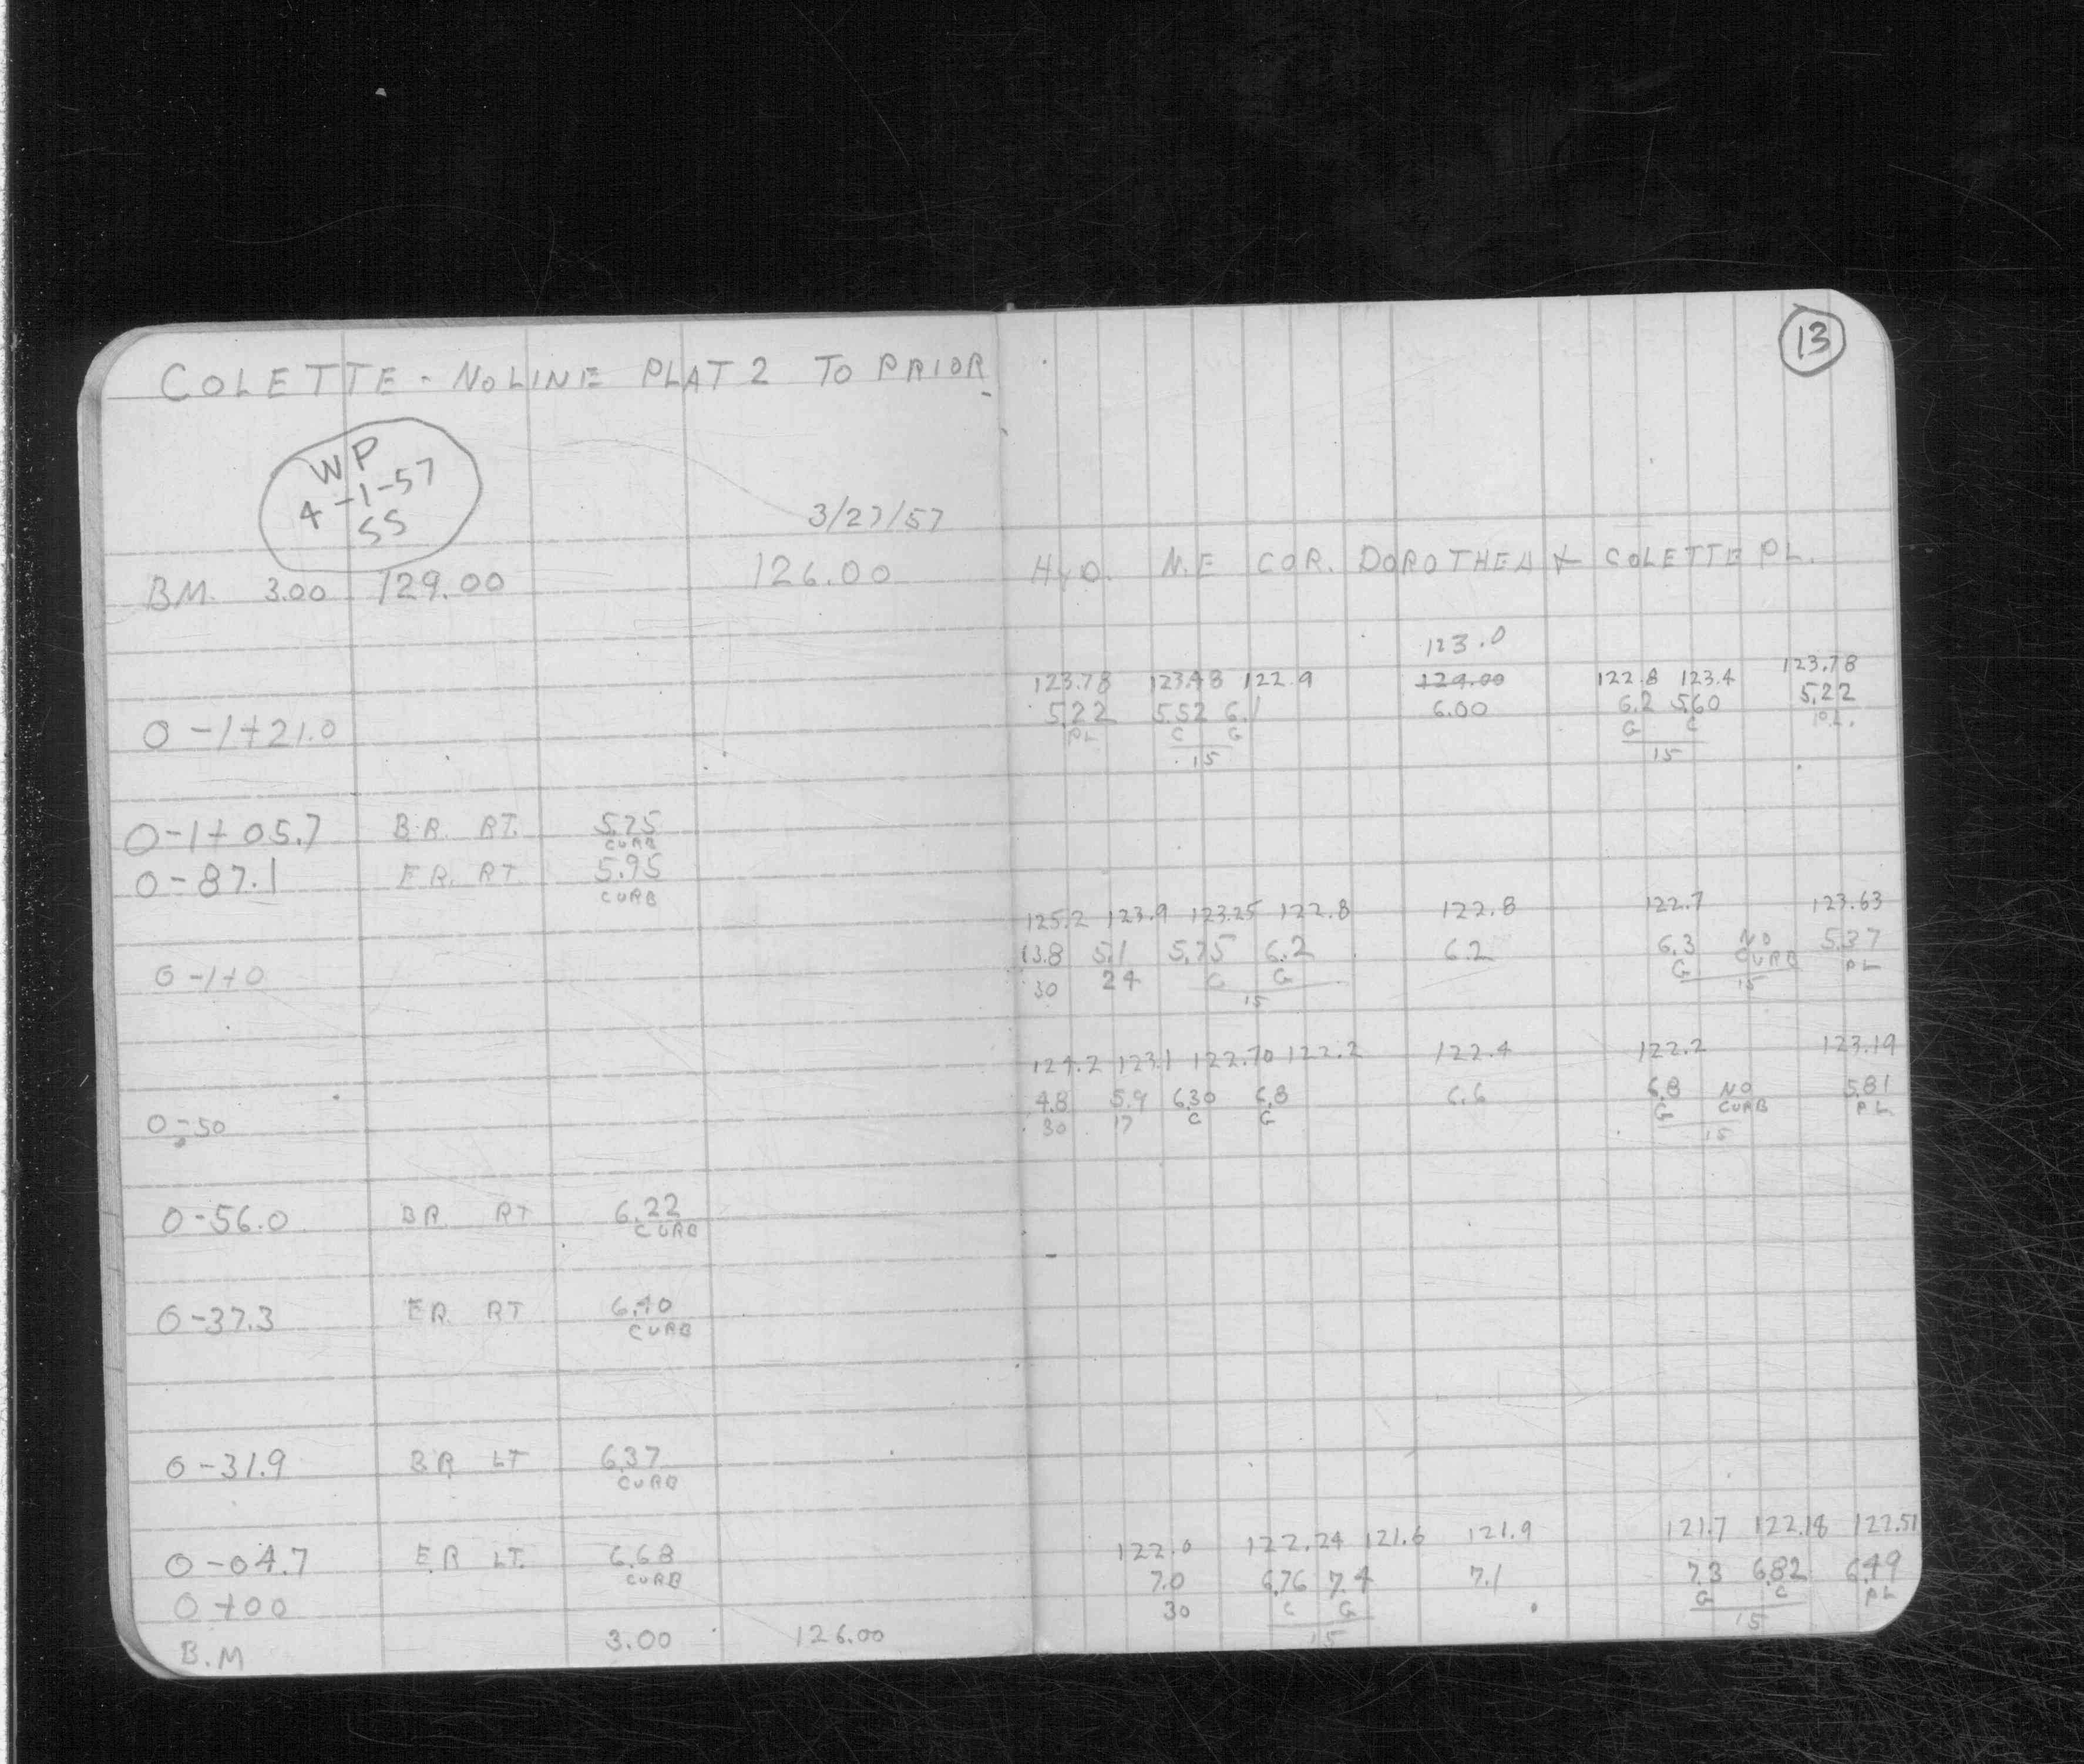 COLETTE - NOLINE PLAT 2 TO PRIOR
13
WP
4-1-57
SS
3/27/57
BM. 3.00 129.00 126.00 HYD. N.E COR. DOROTHEA & COLETTE PL.
123.0
123.78 123.48 122.9 129.00 122.8 123.4 123.78
0-1+21.0 5.22 5.52 6.1 6.00 6.2 5.60 5.22
PL C G G C P.L.
15 15
0-1+05.7 B.R. RT. 5.75
CURB
0-87.1 E.R. RT 5.95
CURB
125.2 123.9 123.25 122.8 122.8 122.7 123.63
0-1+0 13.8 5.1 5.75 6.2 6.2 6.3 NO CURB 5.37
30 24 C G G PL
15 15
124.2 123.1 122.70 122.2 122.4 122.2 123.19
0-50 4.8 5.9 6.30 6.8 6.6 6.8 NO CURB 5.81
30 17 C G G PL
15
0-56.0 BR. RT 6.22
CURB
0-37.3 ER. RT 6.40
CURB
0-31.9 BR LT 6.37
CURB
122.0 122.24 121.6 121.9 121.7 122.18 122.51
0-04.7 E.R LT. 6.68 7.0 6.76 7.4 7.1 7.3 6.82 6.49
CURB
0+00 30 C G G C PL
15 15
B.M 3.00 126.00